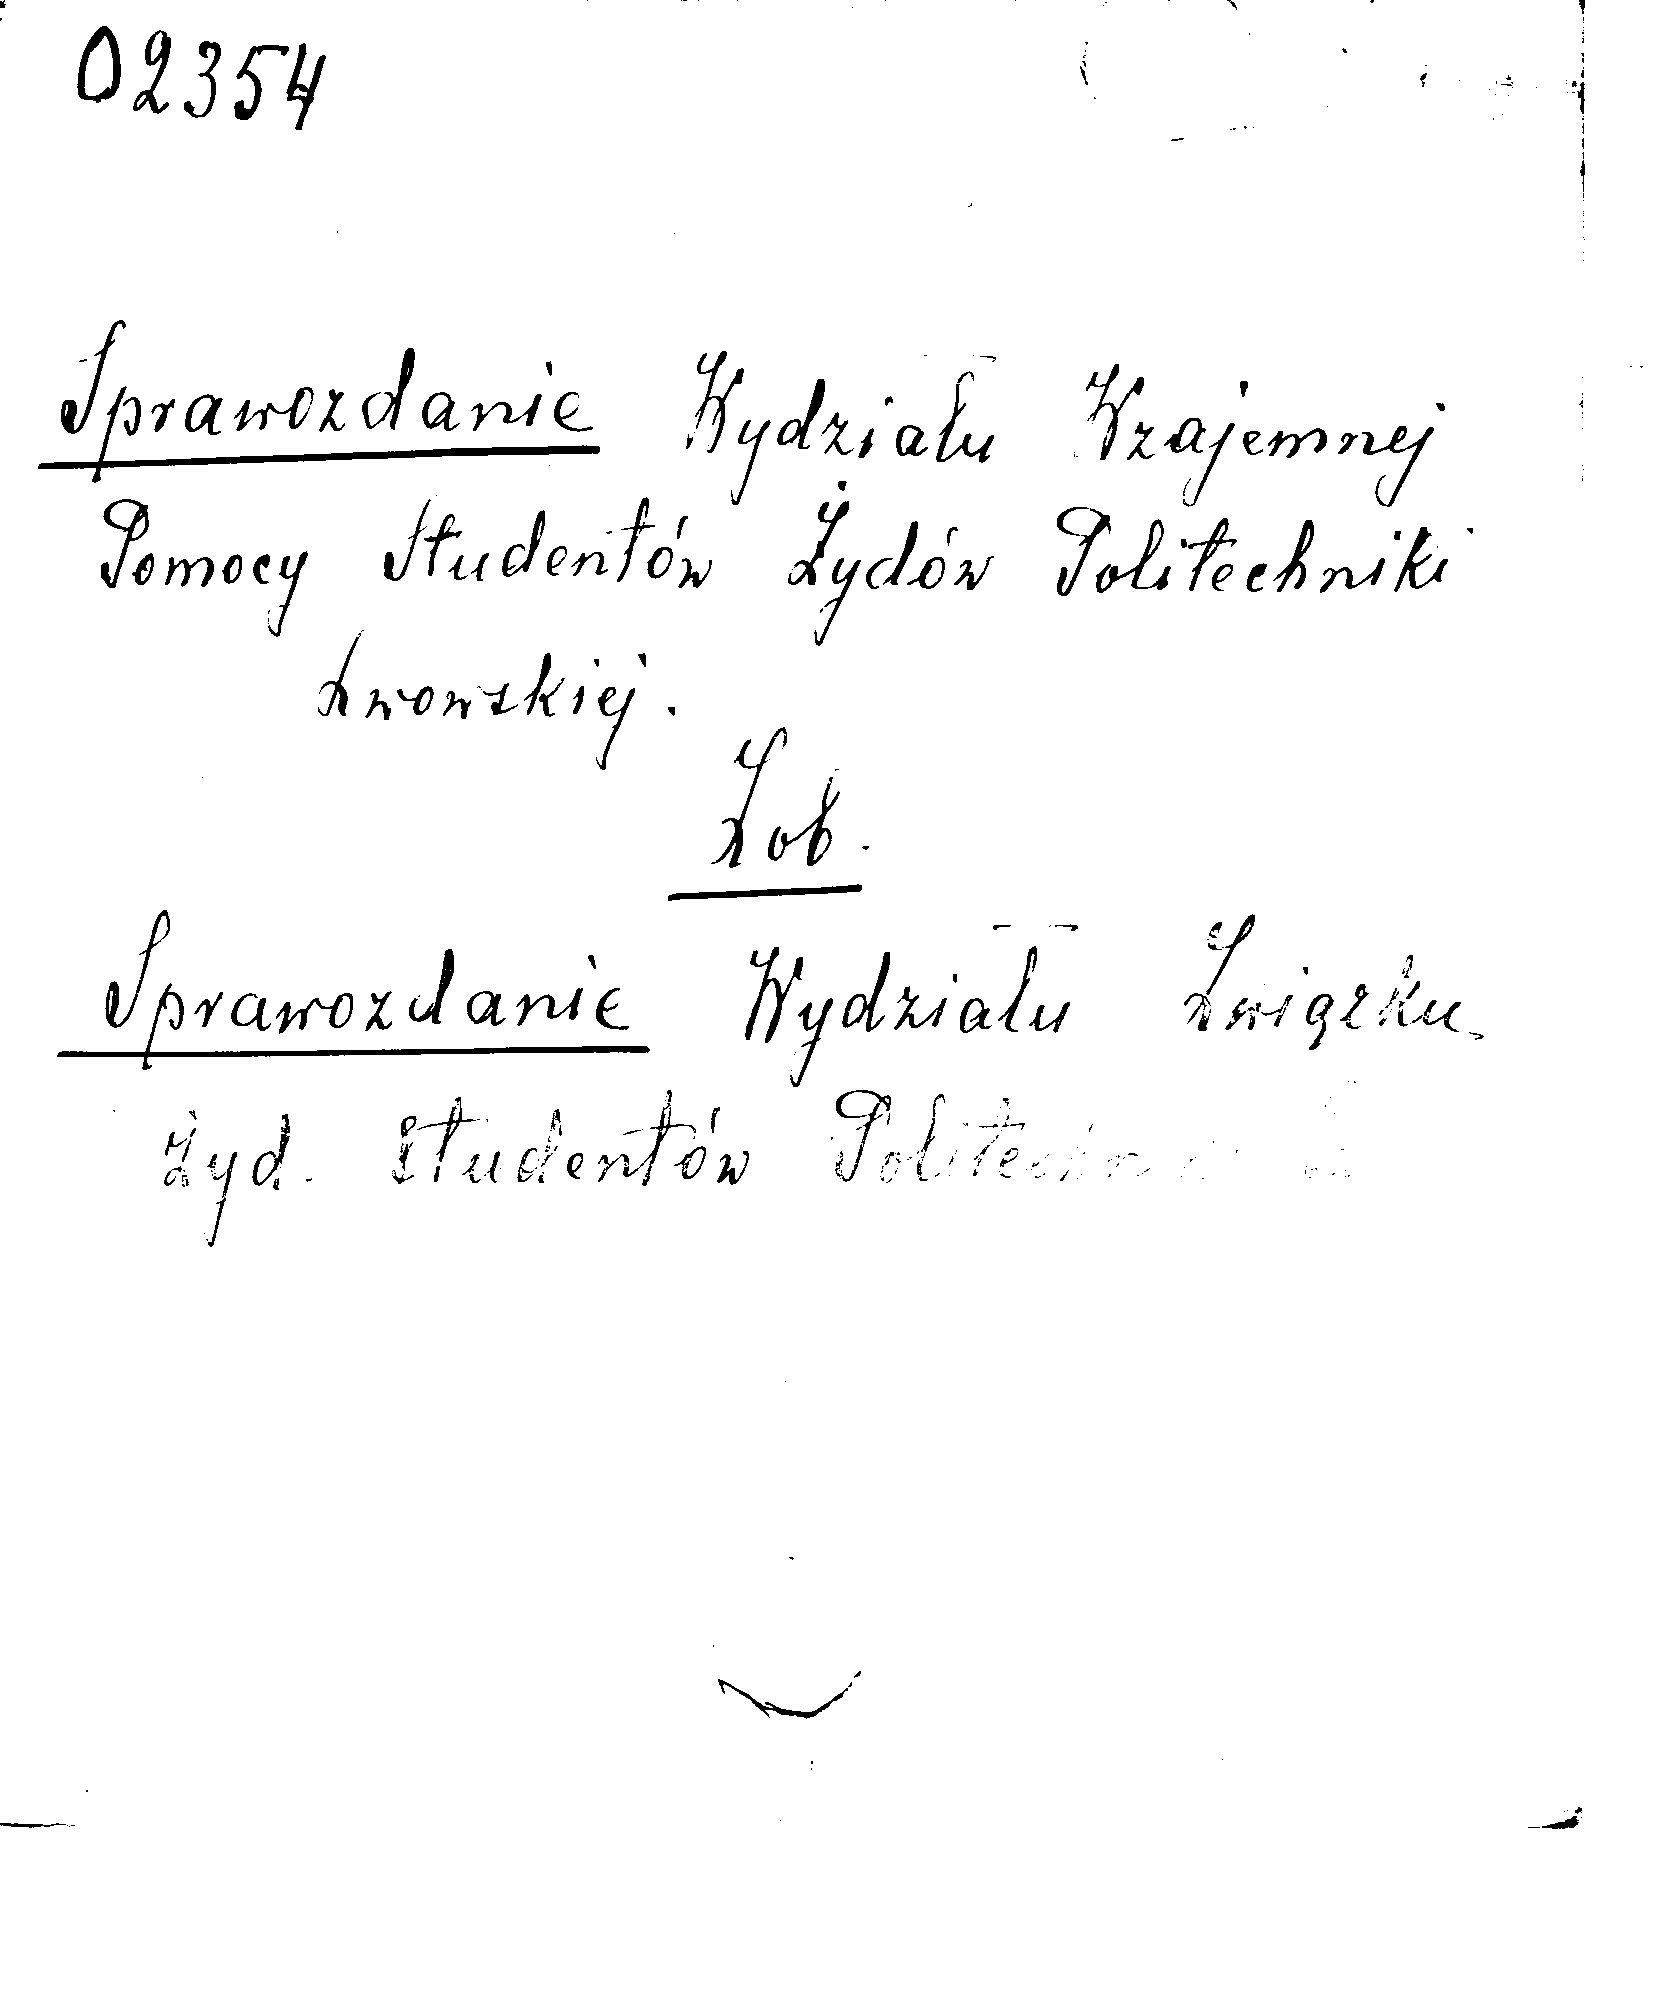 02354
Sprawozdanie Wydziału Wzajemnej
Pomocy Studentów Żydów Politechniki
Lwowskiej.
Zob.
Sprawozdanie Wydziału Związku
Żyd. Studentów